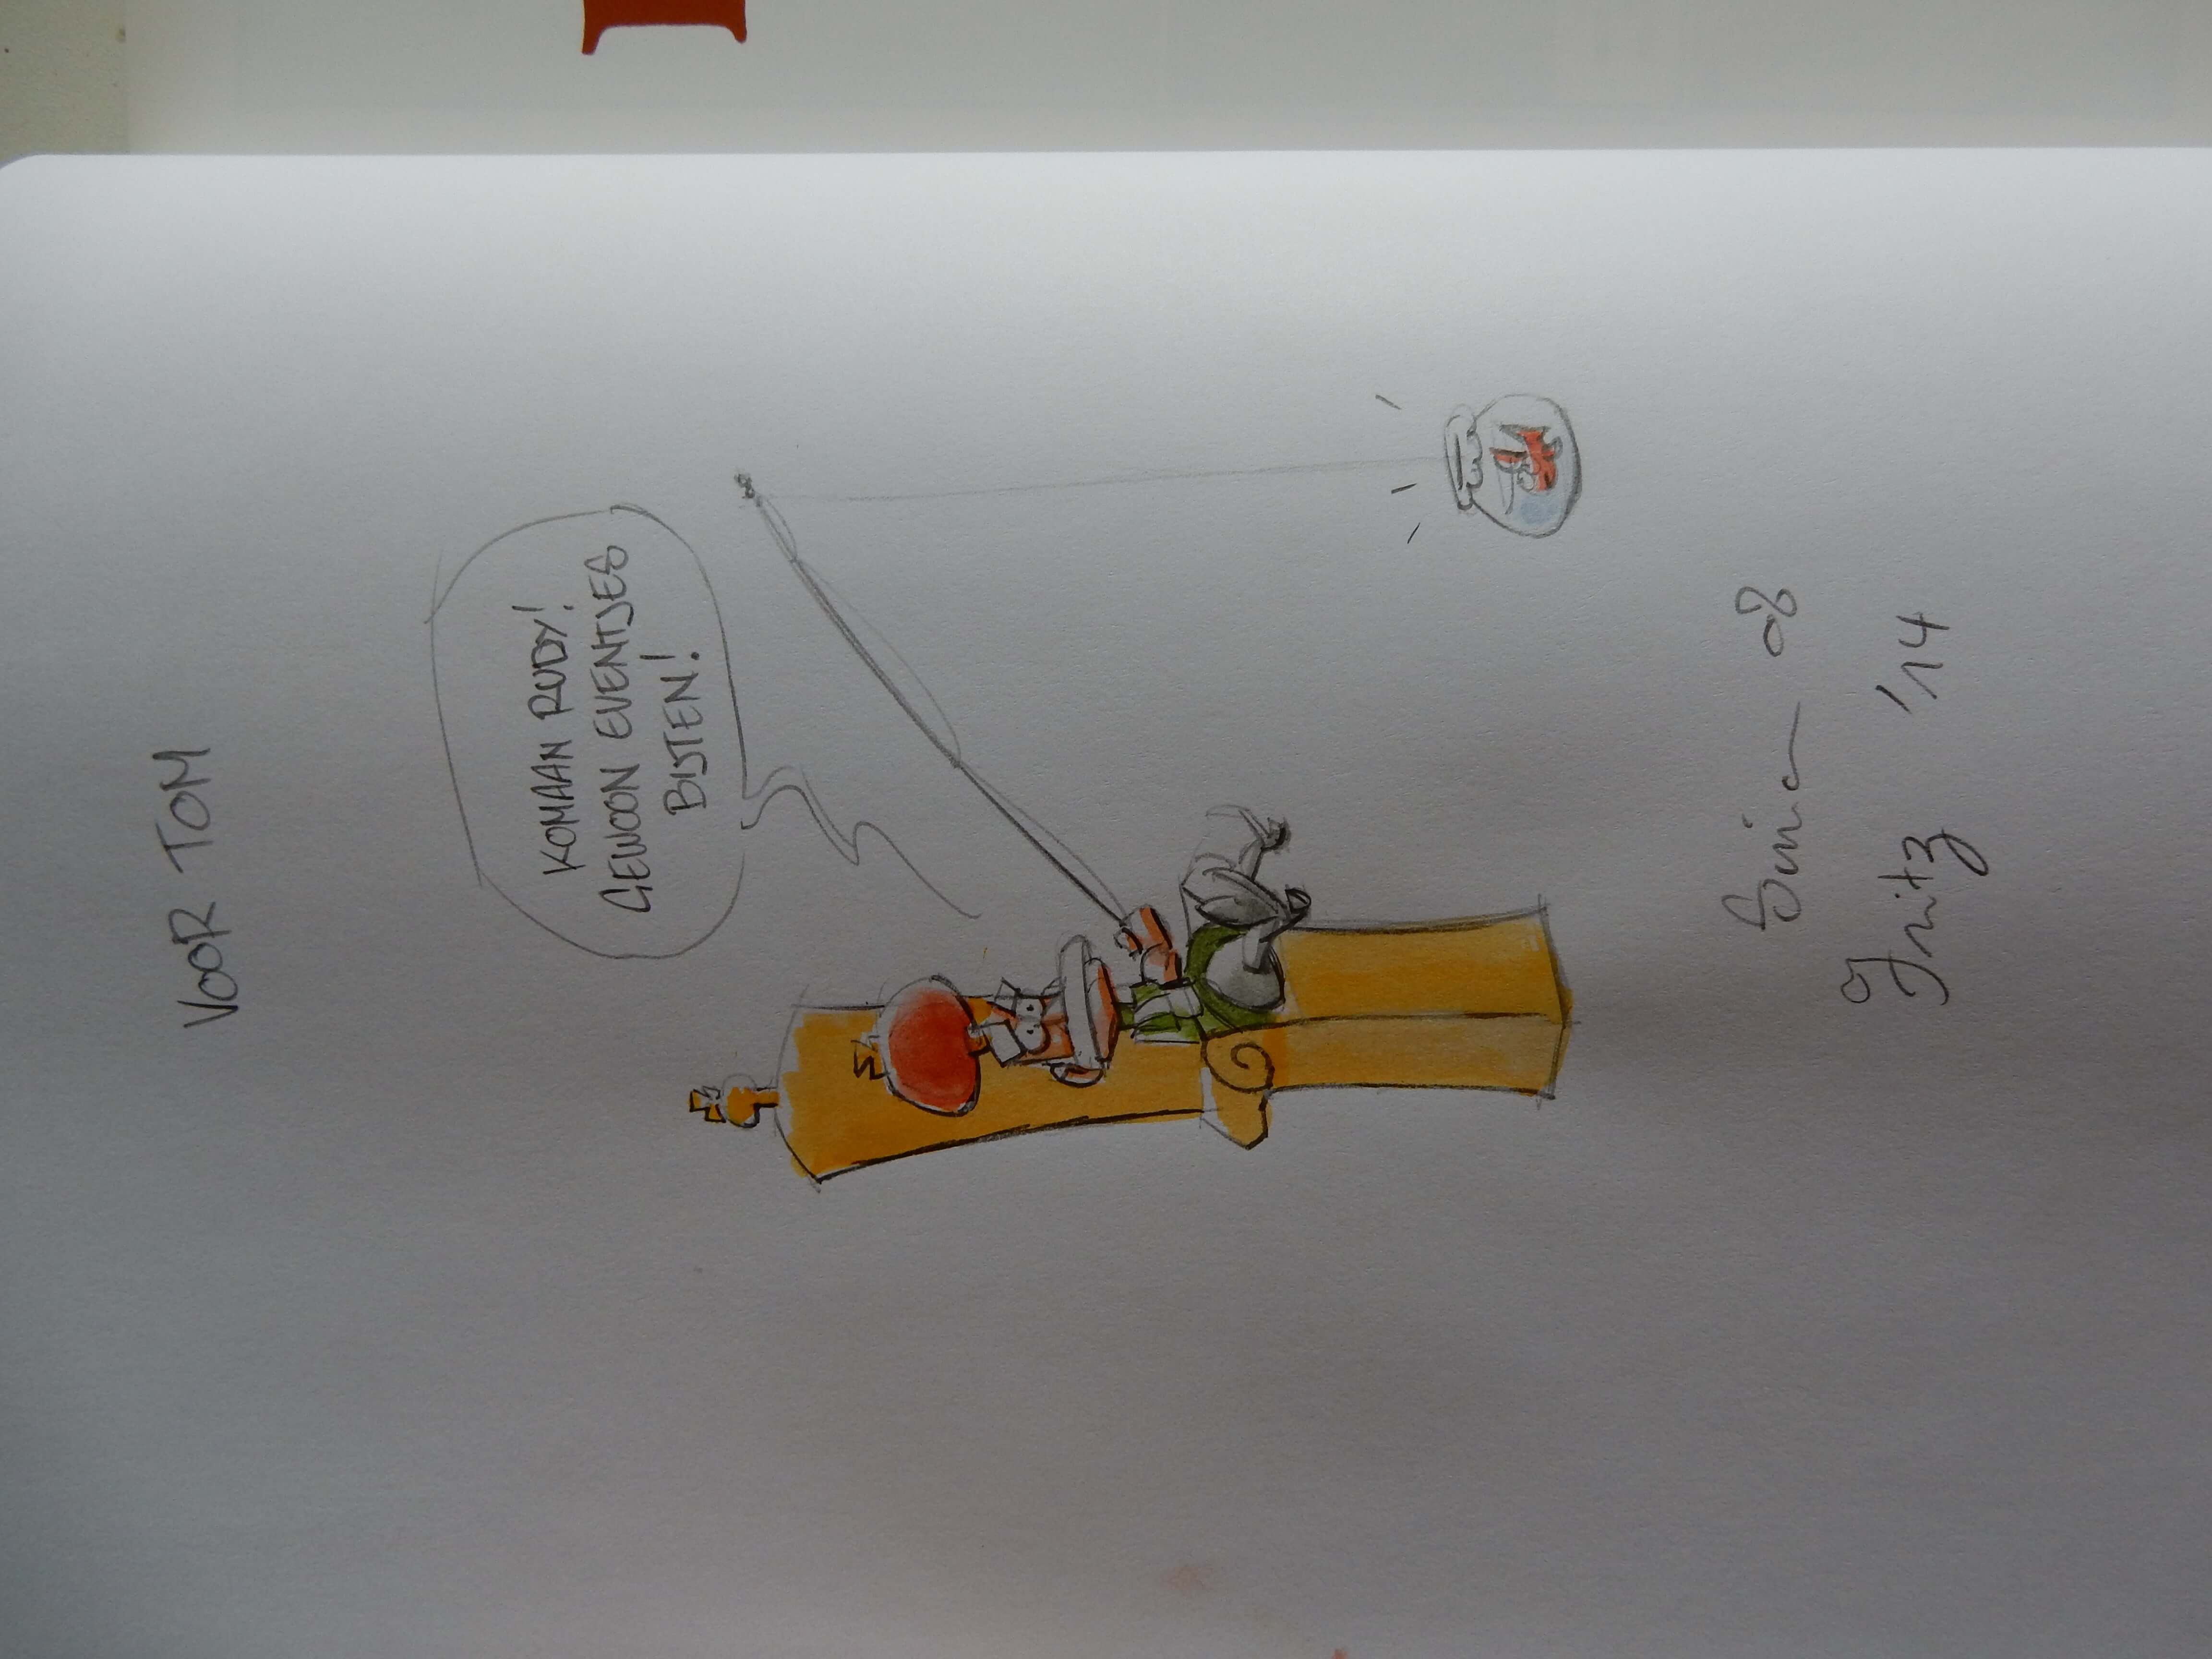 VOOR TOM
KOMAAN RUDY!
GEWOON EVENTJES
BIJTEN!
Fritz '14